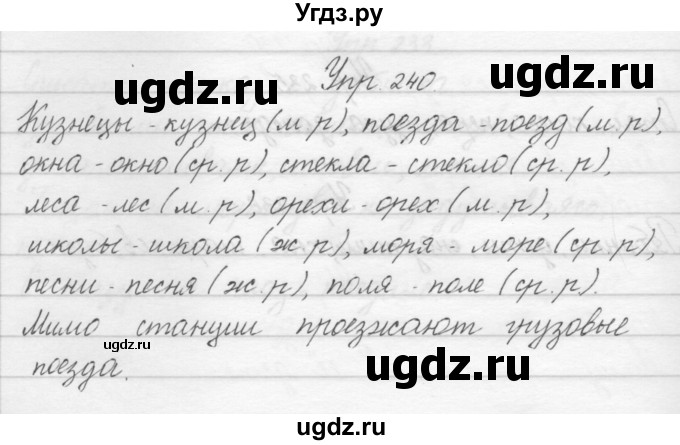 Угдз.ру
Упр. 240.
Кузнецы - кузнец (м.р), поезда - поезд (м.р),
окна - окно (ср.р), стекла - стекло (ср.р),
леса - лес (м.р), орехи - орех (м.р),
школы - школа (ж.р), моря - море (ср.р),
песни - песня (ж.р), поля - поле (ср.р).
Мимо станции проезжают грузовые
поезда.
ugdz.ru
ugdz.ru
ugdz.ru
ugdz.ru
ugdz.ru
ugdz.ru
ugdz.ru
ugdz.ru